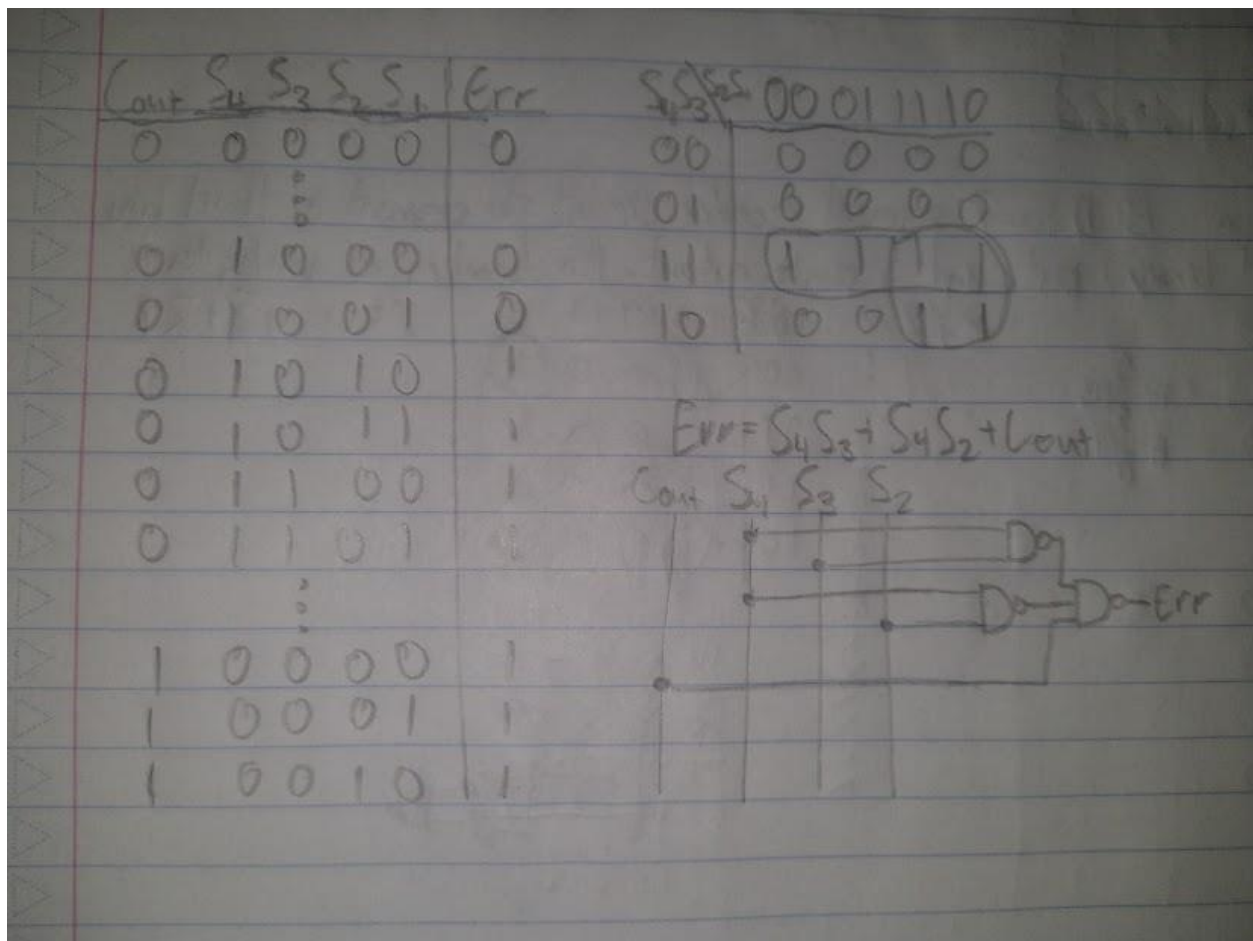 Cout S4 S3 S2 S1 | Err
0 0 0 0 0 | 0
0 1 0 0 0 | 0
0 1 0 0 1 | 0
0 1 0 1 0 | 1
0 1 0 1 1 | 1
0 1 1 0 0 | 1
0 1 1 0 1 | 1
1 0 0 0 0 | 1
1 0 0 0 1 | 1
1 0 0 1 0 | 1
S4S3\S2S1 00 01 11 10
00 | 0 0 0 0
01 | 0 0 0 0
11 | 1 1 1 1
10 | 0 0 1 1
Err = S4S3 + S4S2 + Cout
Cout S4 S3 S2
Err